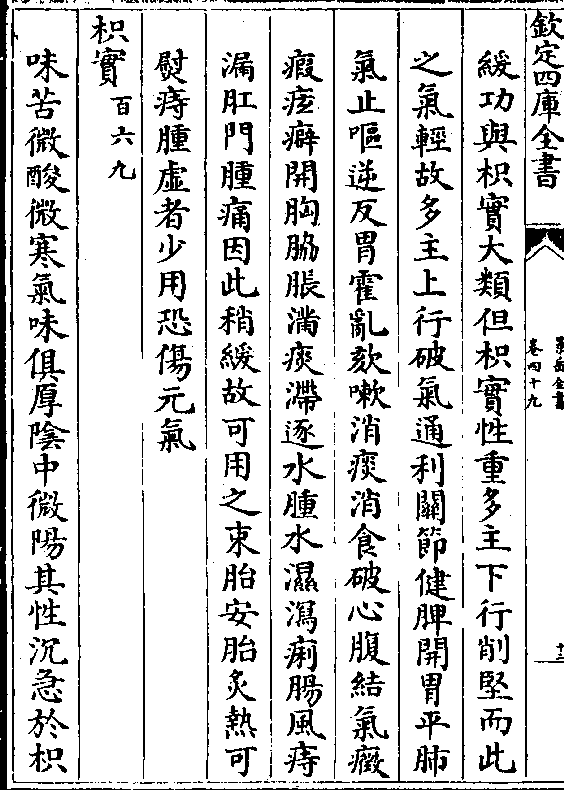 欽定四庫全書
卷四十九
緩功與枳實大類但枳實性重多主下行削堅而此
之氣輕故多主上行破氣通利關節健脾開胃平肺
氣止嘔逆反胃霍亂欬嗽消痰消食破心腹結氣癥
瘕痃癖開胸脇脹滿痰滯逐水腫水濕瀉痢腸風痔
漏肛門腫痛因此稍緩故可用之束胎安胎炙熱可
熨痔腫虛者少用恐傷元氣
枳實百六九
味苦微酸微寒氣味俱厚陰中微陽其性沉急於枳